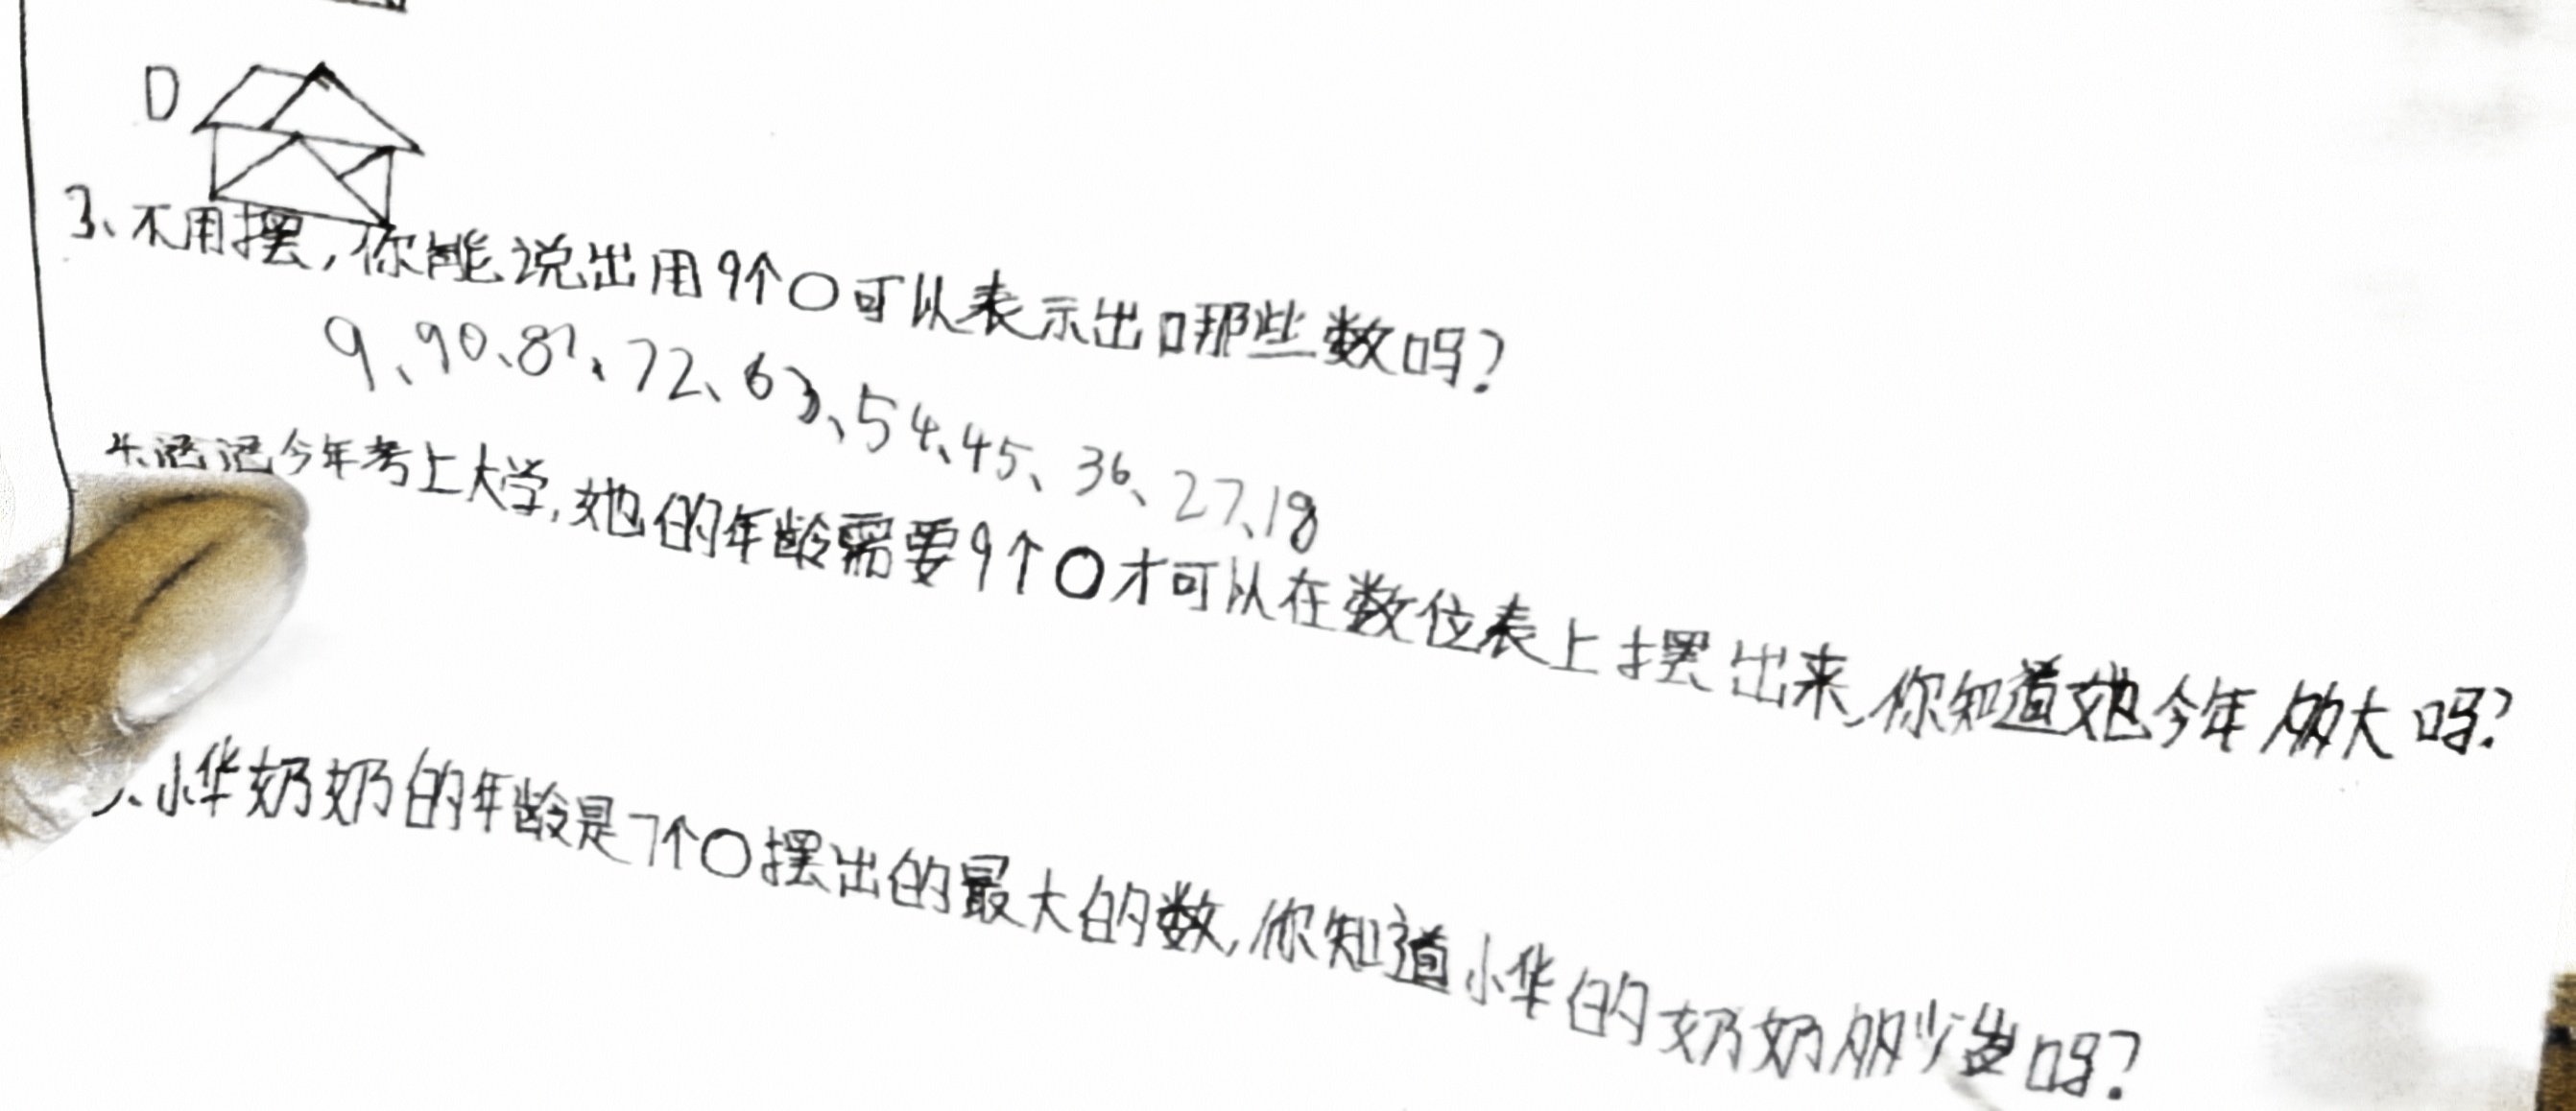 D
3、不用摆，你能说出用9个○可以表示出哪些数吗？
9、90、81、72、63、54、45、36、27、18
4、涵涵今年考上大学，她的年龄需要9个○才可以在数位表上摆出来，你知道她今年多大吗？
、小华奶奶的年龄是7个○摆出的最大的数，你知道小华的奶奶多少岁吗？